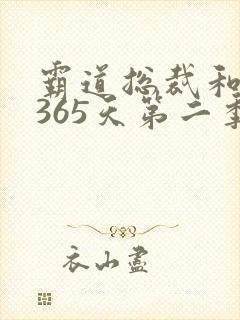 霸道总裁和
365天第二季
衣山尽